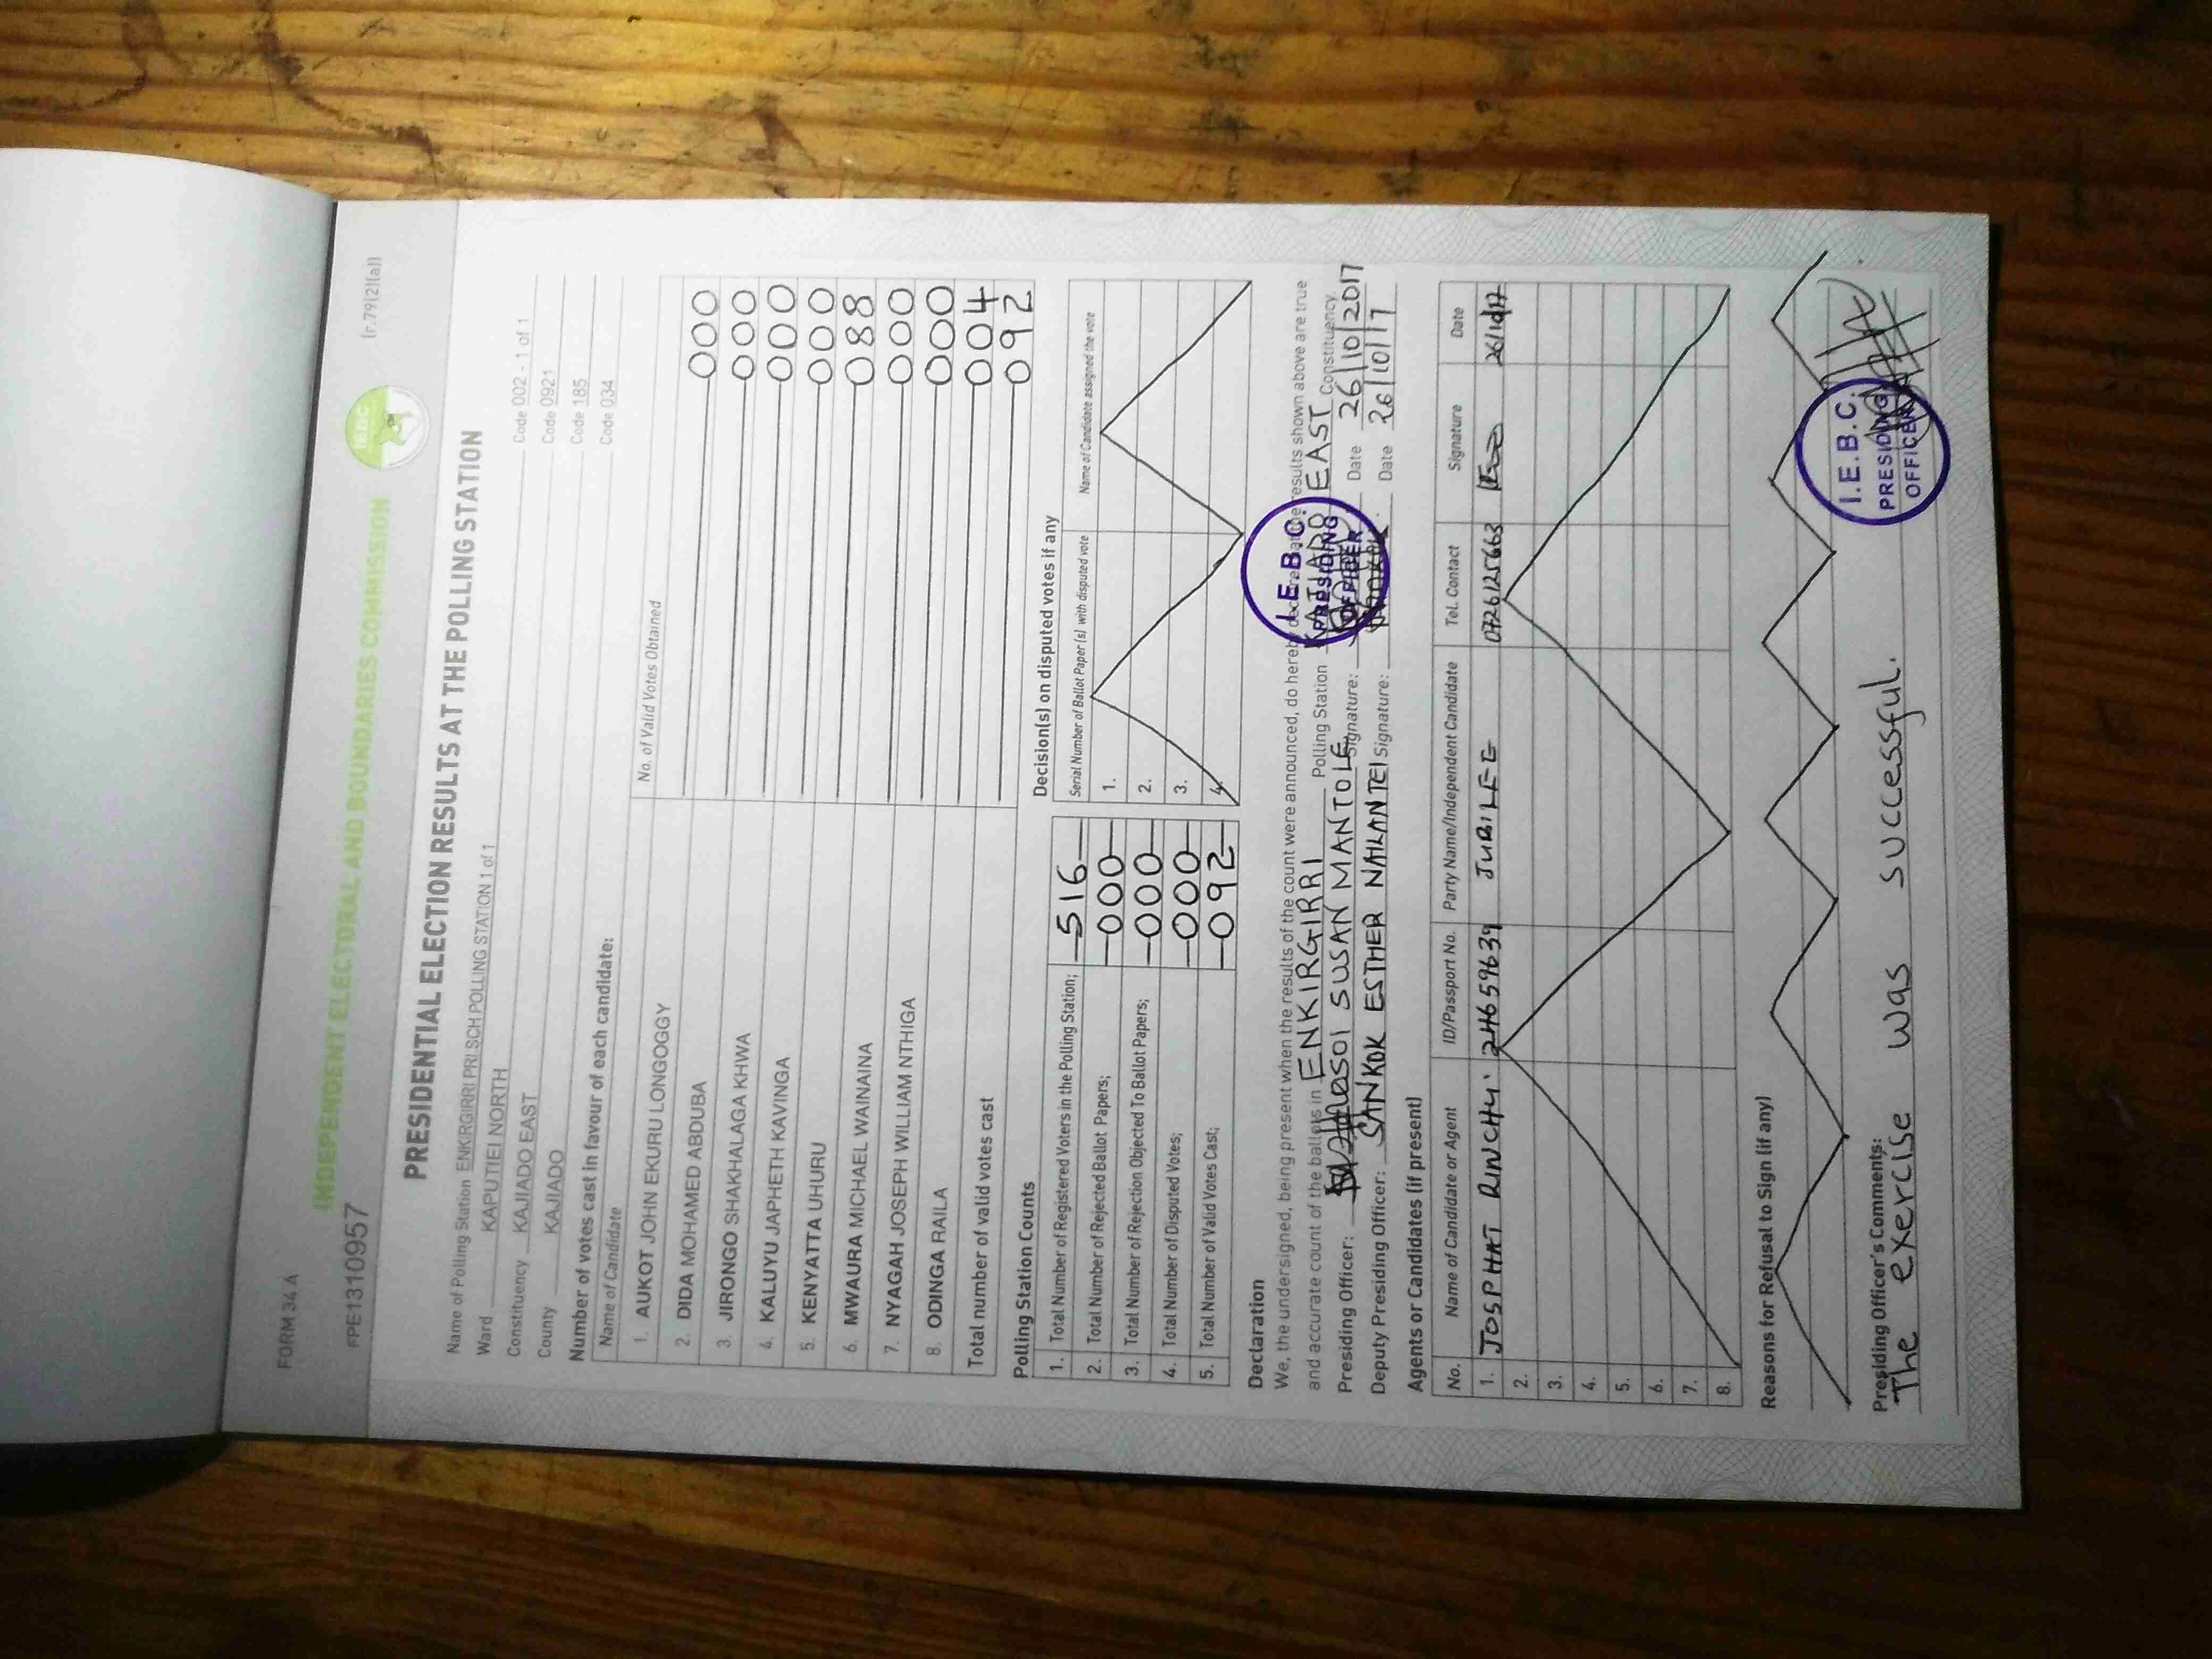 FORM 34A
(r.79(2)(a))
FPE1310957
INDEPENDENT ELECTORAL AND BOUNDARIES COMMISSION
IEBC
PRESIDENTIAL ELECTION RESULTS AT THE POLLING STATION
Name of Polling Station ENKIRGIRRI PRI SCH POLLING STATION 1 of 1 Code 002 - 1 of 1
Ward KAPUTIEI NORTH Code 0921
Constituency KAJIADO EAST Code 185
County KAJIADO Code 034
Number of votes cast in favour of each candidate:
Name of Candidate No. of Valid Votes Obtained
1. AUKOT JOHN EKURU LONGOGGY 000
2. DIDA MOHAMED ABDUBA 000
3. JIRONGO SHAKHALAGA KHWA 000
4. KALUYU JAPHETH KAVINGA 000
5. KENYATTA UHURU 088
6. MWAURA MICHAEL WAINAINA 000
7. NYAGAH JOSEPH WILLIAM NTHIGA 000
8. ODINGA RAILA 004
Total number of valid votes cast 092
Polling Station Counts
1. Total Number of Registered Voters in the Polling Station; 516
2. Total Number of Rejected Ballot Papers; 000
3. Total Number of Rejection Objected To Ballot Papers; 000
4. Total Number of Disputed Votes; 000
5. Total Number of Valid Votes Cast; 092
Decision(s) on disputed votes if any
Serial Number of Ballot Paper (s) with disputed vote Name of Candidate assigned the vote
1.
2.
3.
4.
Declaration
We, the undersigned, being present when the results of the count were announced, do hereby declare that the results shown above are true
and accurate count of the ballots in ENKIRGIRRI Polling Station KAJIADO EAST Constituency
Presiding Officer: SOI SUSAN MANTOLE Signature: Date 26/10/2017
Deputy Presiding Officer: SANKOK ESTHER NAILANTEI Signature: Date 26/10/17
I.E.B.C. PRESIDING OFFICER
Agents or Candidates (if present)
No. Name of Candidate or Agent ID/Passport No. Party Name/Independent Candidate Tel. Contact Signature Date
1. JOSPHAT RINCHY. JUBILEE 0726125663 26/10/17
2.
3.
4.
5.
6.
7.
8.
Reasons for Refusal to Sign (if any)
Presiding Officer's Comments:
The exercise was successful.
I.E.B.C. PRESIDING OFFICER